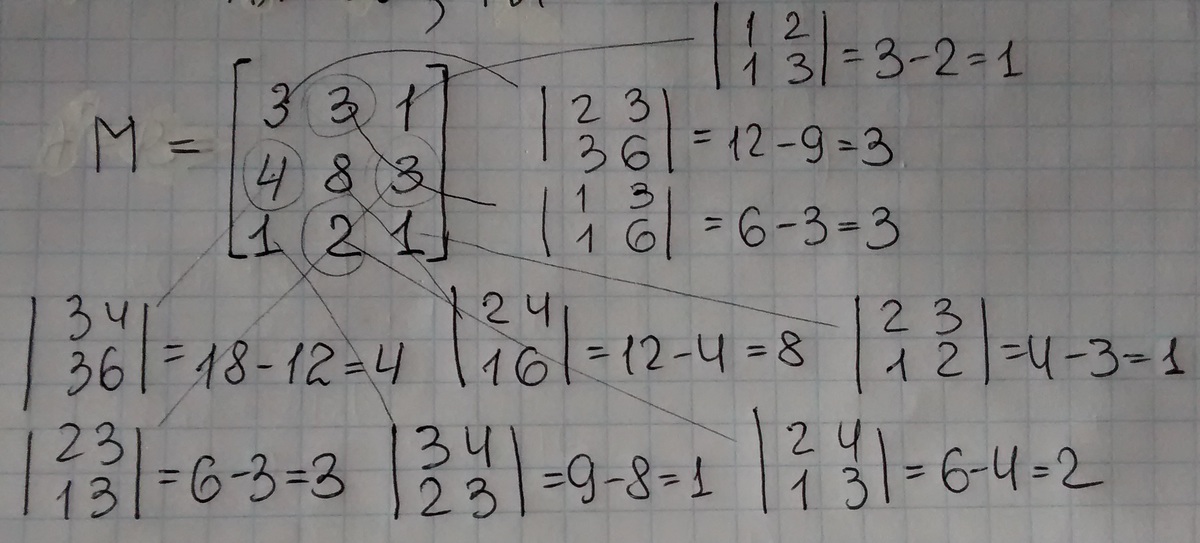 |1 2|
|1 3| = 3-2=1
M = [3 3 1]
[4 8 3]
[1 2 1]
|2 3|
|3 6| = 12-9=3
|1 3|
|1 6| = 6-3=3
|3 4|
|3 6| = 18-12=4
|2 4|
|1 6| = 12-4=8
|2 3|
|1 2| = 4-3=1
|2 3|
|1 3| = 6-3=3
|3 4|
|2 3| = 9-8=1
|2 4|
|1 3| = 6-4=2